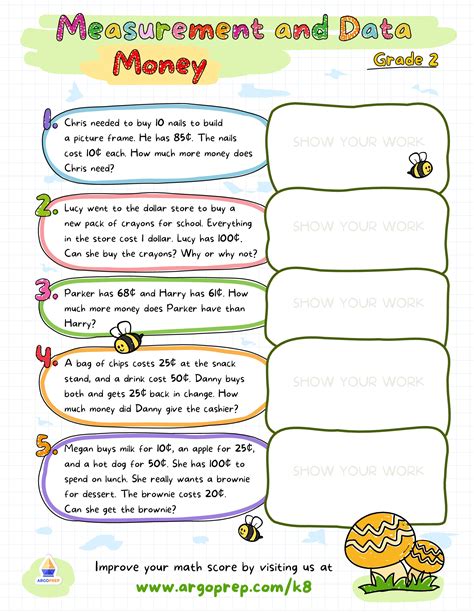 Measurement and Data
Money
Grade 2
1.
Chris needed to buy 10 nails to build
a picture frame. He has 85¢. The nails
cost 10¢ each. How much more money does
Chris need?
SHOW YOUR WORK
2.
Lucy went to the dollar store to buy a
new pack of crayons for school. Everything
in the store cost 1 dollar. Lucy has 100¢.
Can she buy the crayons? Why or why not?
SHOW YOUR WORK
3.
Parker has 68¢ and Harry has 61¢. How
much more money does Parker have than
Harry?
SHOW YOUR WORK
4.
A bag of chips costs 25¢ at the snack
stand, and a drink cost 50¢. Danny buys
both and gets 25¢ back in change. How
much money did Danny give the cashier?
SHOW YOUR WORK
5.
Megan buys milk for 10¢, an apple for 25¢,
and a hot dog for 50¢. She has 100¢ to
spend on lunch. She really wants a brownie
for dessert. The brownie costs 20¢.
Can she get the brownie?
SHOW YOUR WORK
ARGOPREP
Improve your math score by visiting us at
www.argoprep.com/k8